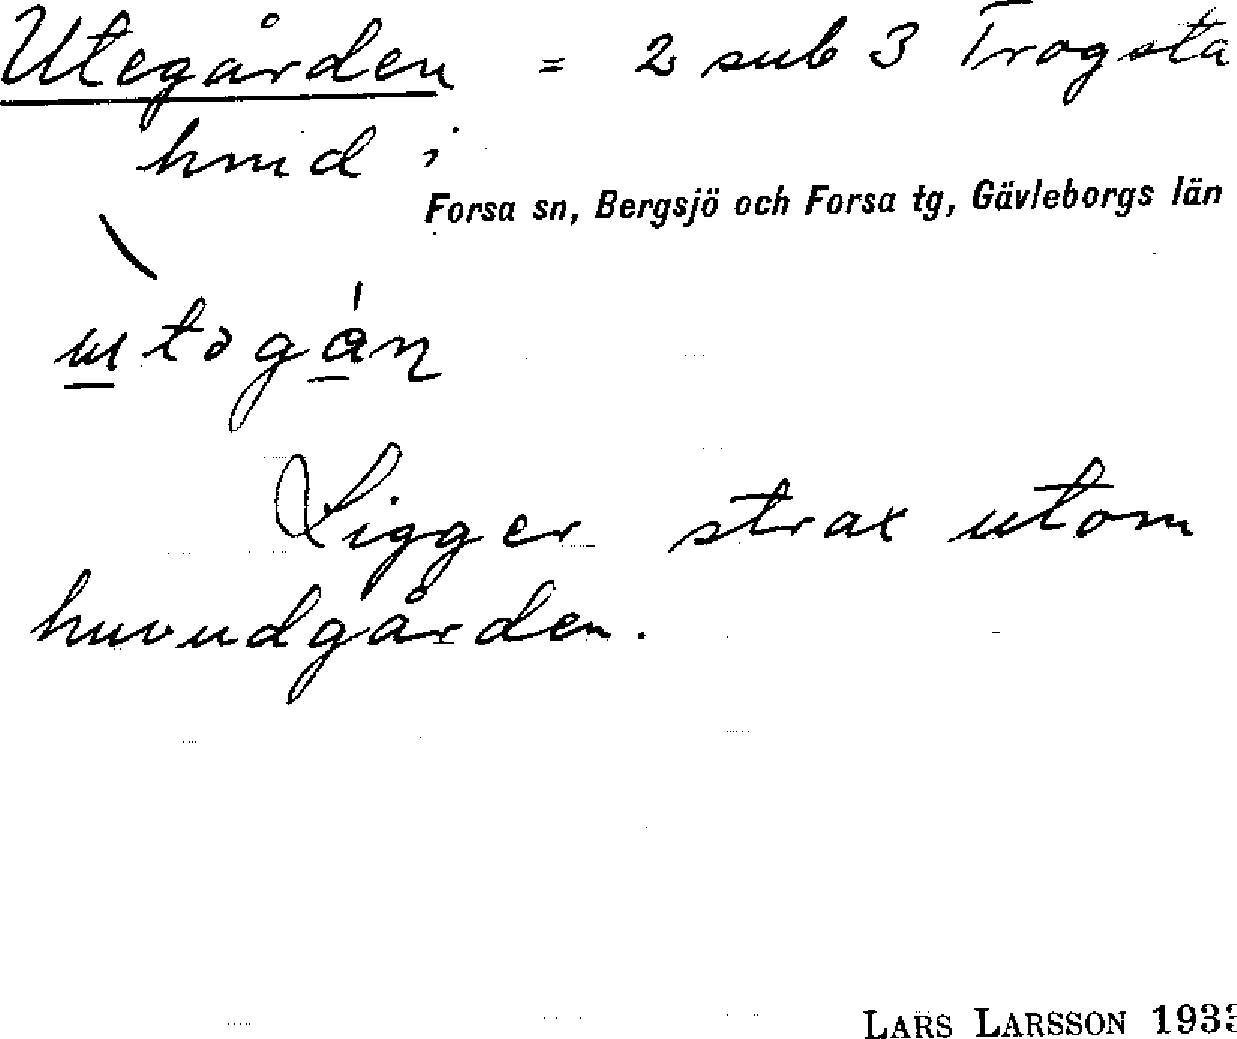 Utegården = 2 sub 3 Trogsta
hmd i
Forsa sn, Bergsjö och Forsa tg, Gävleborgs län
Ligger strax utom
huvudgården.
LARS LARSSON 1933